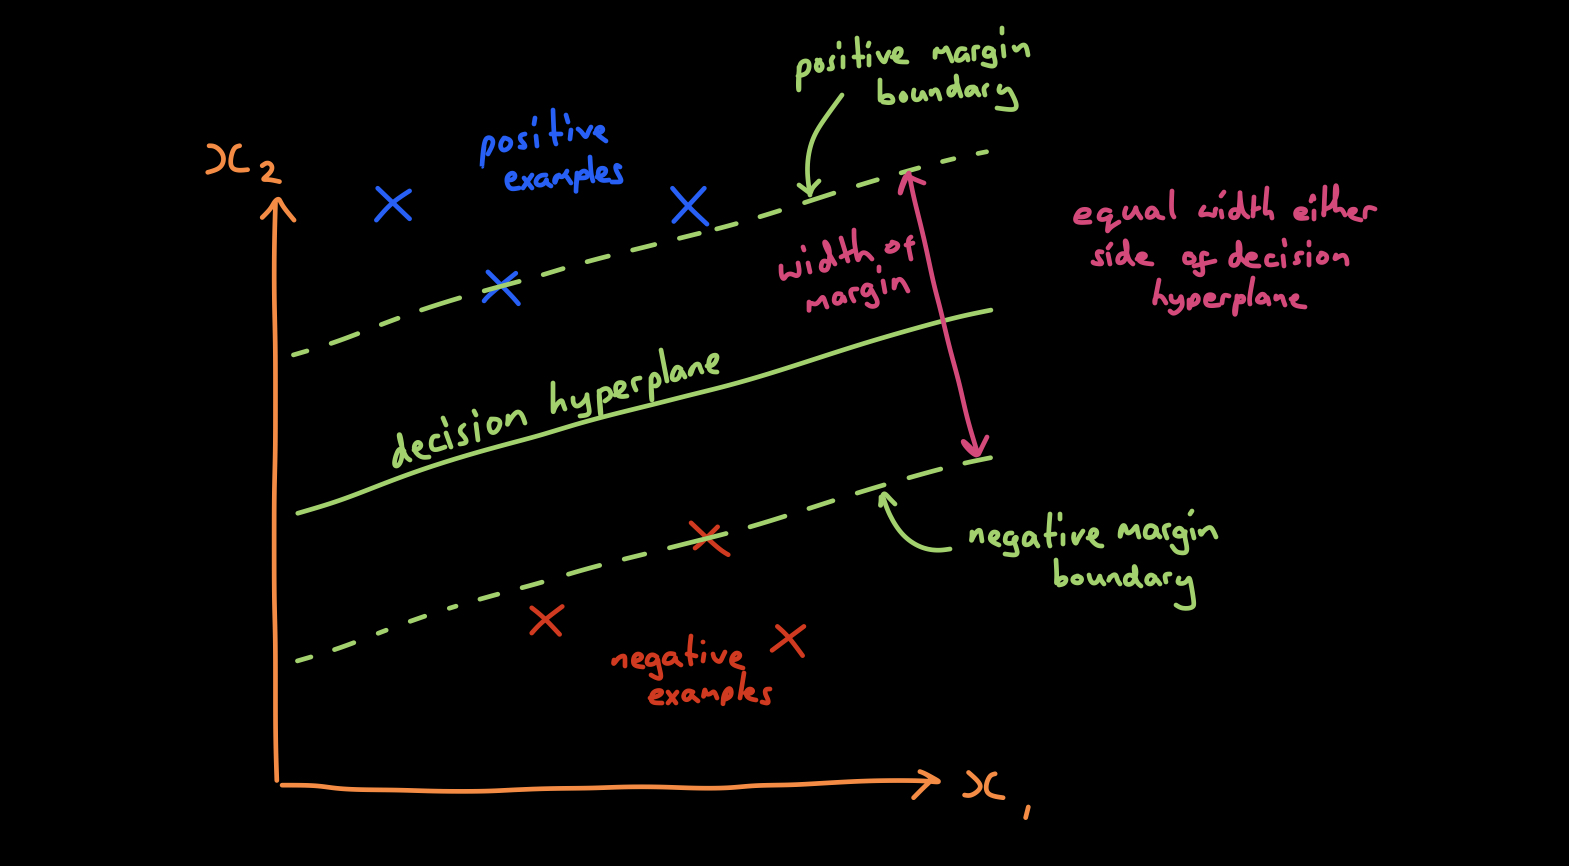 positive margin
boundary
positive
examples
x₂
equal width either
side of decision
hyperplane
width of
margin
decision hyperplane
negative margin
boundary
negative
examples
x₁